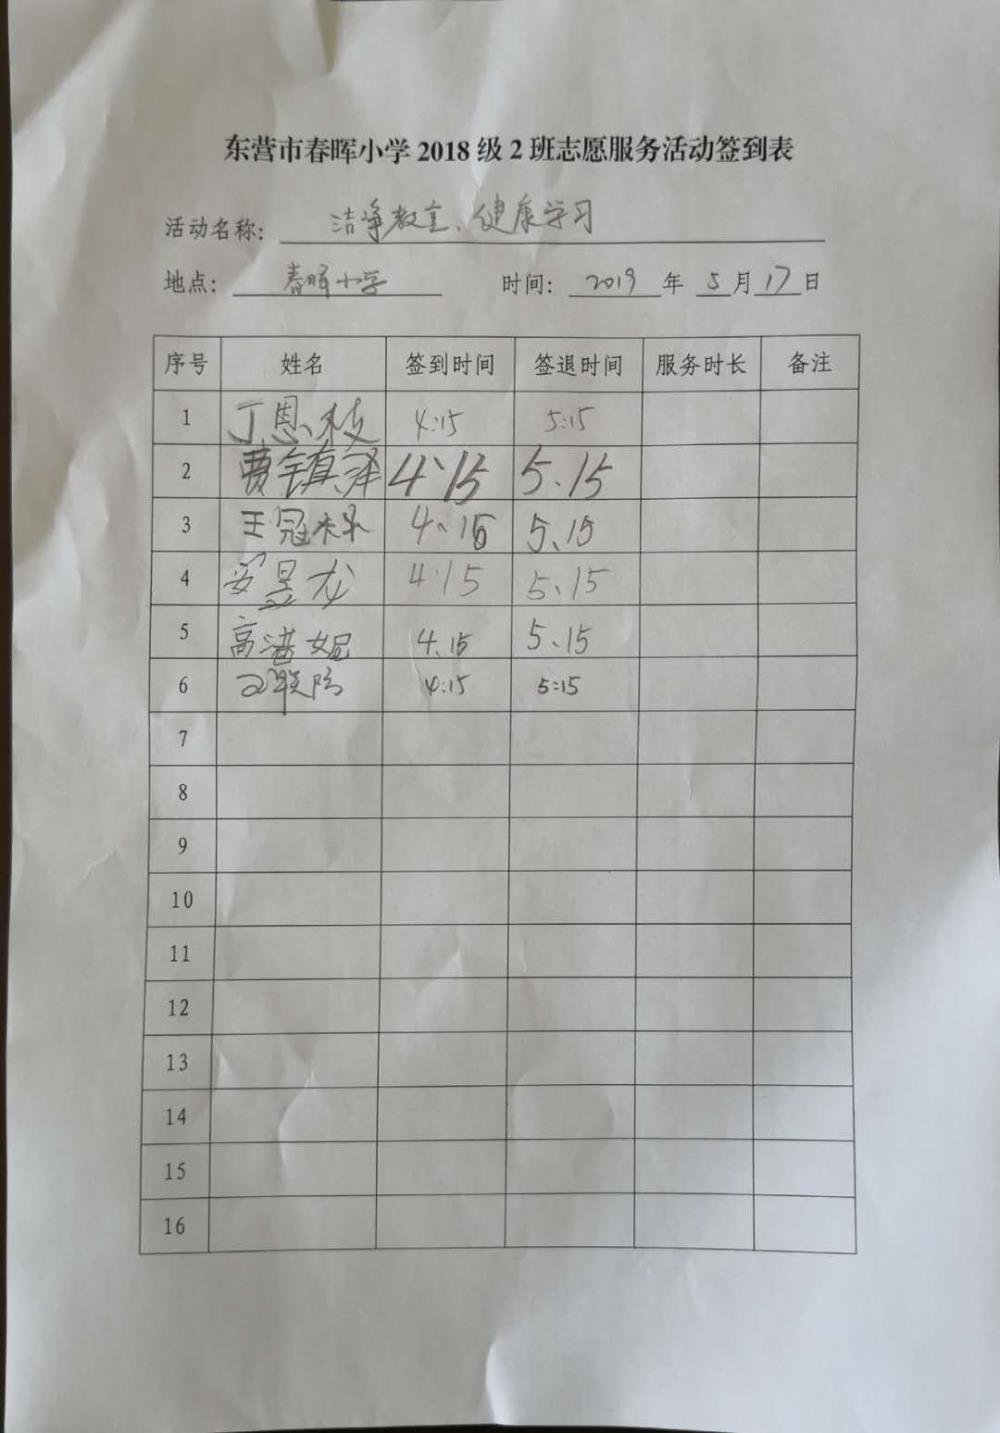 东营市春晖小学2018级2班志愿服务活动签到表
活动名称: 洁净教室、健康学习
地点: 春晖小学 时间: 2019 年 5 月 17 日
序号 姓名 签到时间 签退时间 服务时长 备注
1 丁恩枝 4:15 5:15
2 费镇泽 4、15 5、15
3 王冠 4、15 5、15
4 安昱龙 4·15 5、15
5 高 妮 4、15 5、15
6 4:15 5:15
7
8
9
10
11
12
13
14
15
16